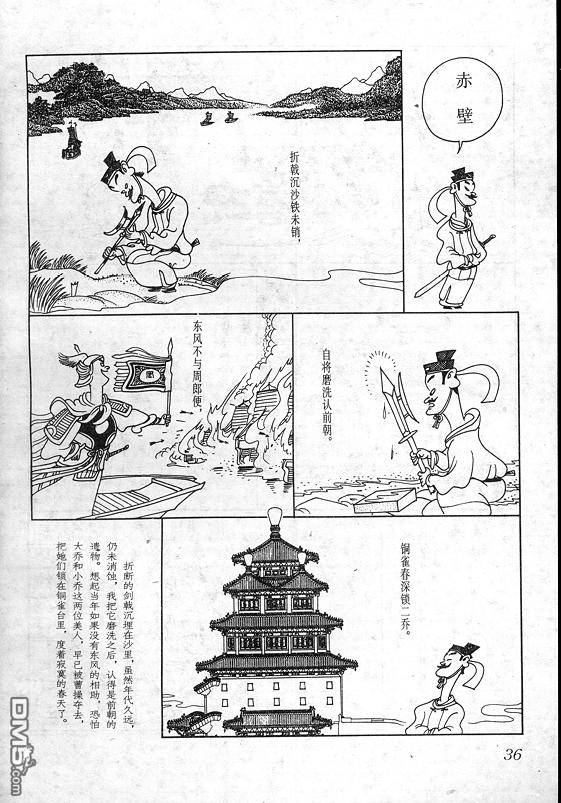 赤壁
折戟沉沙铁未销，
自将磨洗认前朝。
东风不与周郎便，
铜雀春深锁二乔。
折断的剑戟沉埋在沙里，虽然年代久远，
仍未消蚀，我把它磨洗之后，认得是前朝的
遗物。想起当年如果没有东风的相助，恐怕
大乔和小乔这两位美人，早已被曹操夺去，
把她们锁在铜雀台里，度着寂寞的春天了。
36
DM5.com